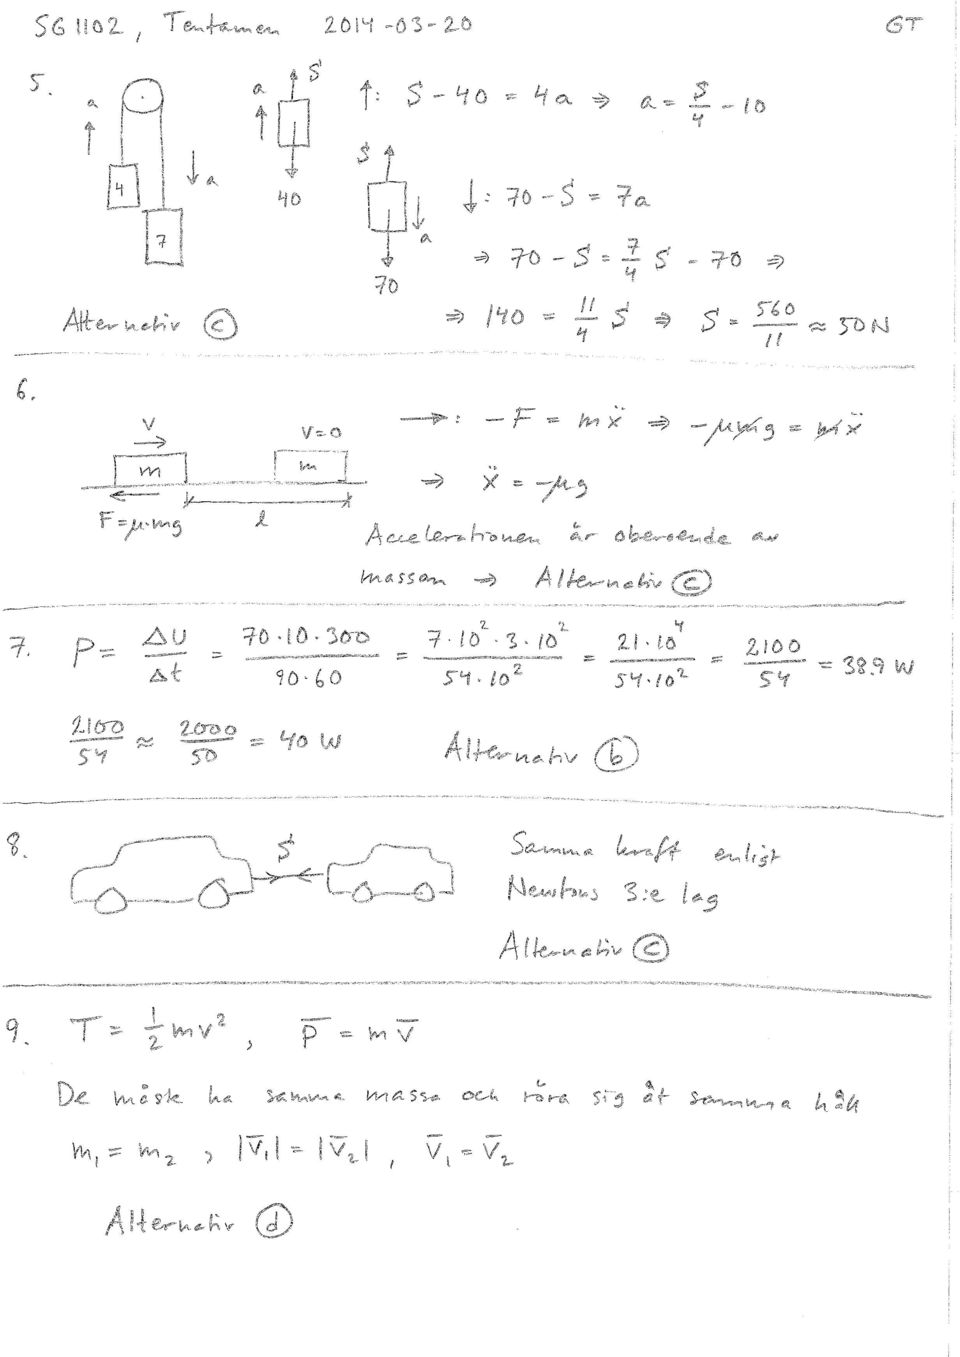 SG1102, Tentamen 2014-03-20 GT
5.
a
4
7
a
a
S
40
↑: S - 40 = 4a ⇒ a = S/4 - 10
S
a
70
↓: 70 - S = 7a
⇒ 70 - S = 7/4 S - 70 ⇒
Alternativ ⓒ
⇒ 140 = 11/4 S ⇒ S = 560/11 ≈ 50N
6.
v
m
F = μ·mg
l
v=0
m
→: -F = mẍ ⇒ -μmg = mẍ
⇒ ẍ = -μg
Accelerationen är oberoende av
massan → Alternativ ⓒ
7. P = ΔU/Δt = 70·10·300/90·60 = 7·10²·3·10²/54·10² = 21·10⁴/54·10² = 2100/54 = 38.9 W
2100/54 ≈ 2000/50 = 40 W Alternativ ⓑ
8.
S
Samma kraft enligt
Newtons 3:e lag
Alternativ ⓒ
9. T = 1/2 mv², p̄ = m v̄
De måste ha samma massa och röra sig åt samma håll
m₁ = m₂, |v̄₁| = |v̄₂|, v̄₁ = v̄₂
Alternativ ⓓ